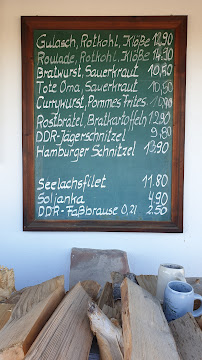 Gulasch, Rotkohl, Klöße 12,90
Roulade, Rotkohl, Klöße 14,30
Bratwurst, Sauerkraut
Tote Oma, Sauerkraut
Currywurst, Pommes frites
Rostbrätel, Bratkartoffeln 12,90
DDR-Jägerschnitzel 9,80
Hamburger Schnitzel 13,90
Seelachsfilet 11.80
Soljanka 4,90
DDR-Faßbrause 0,2l 2.50